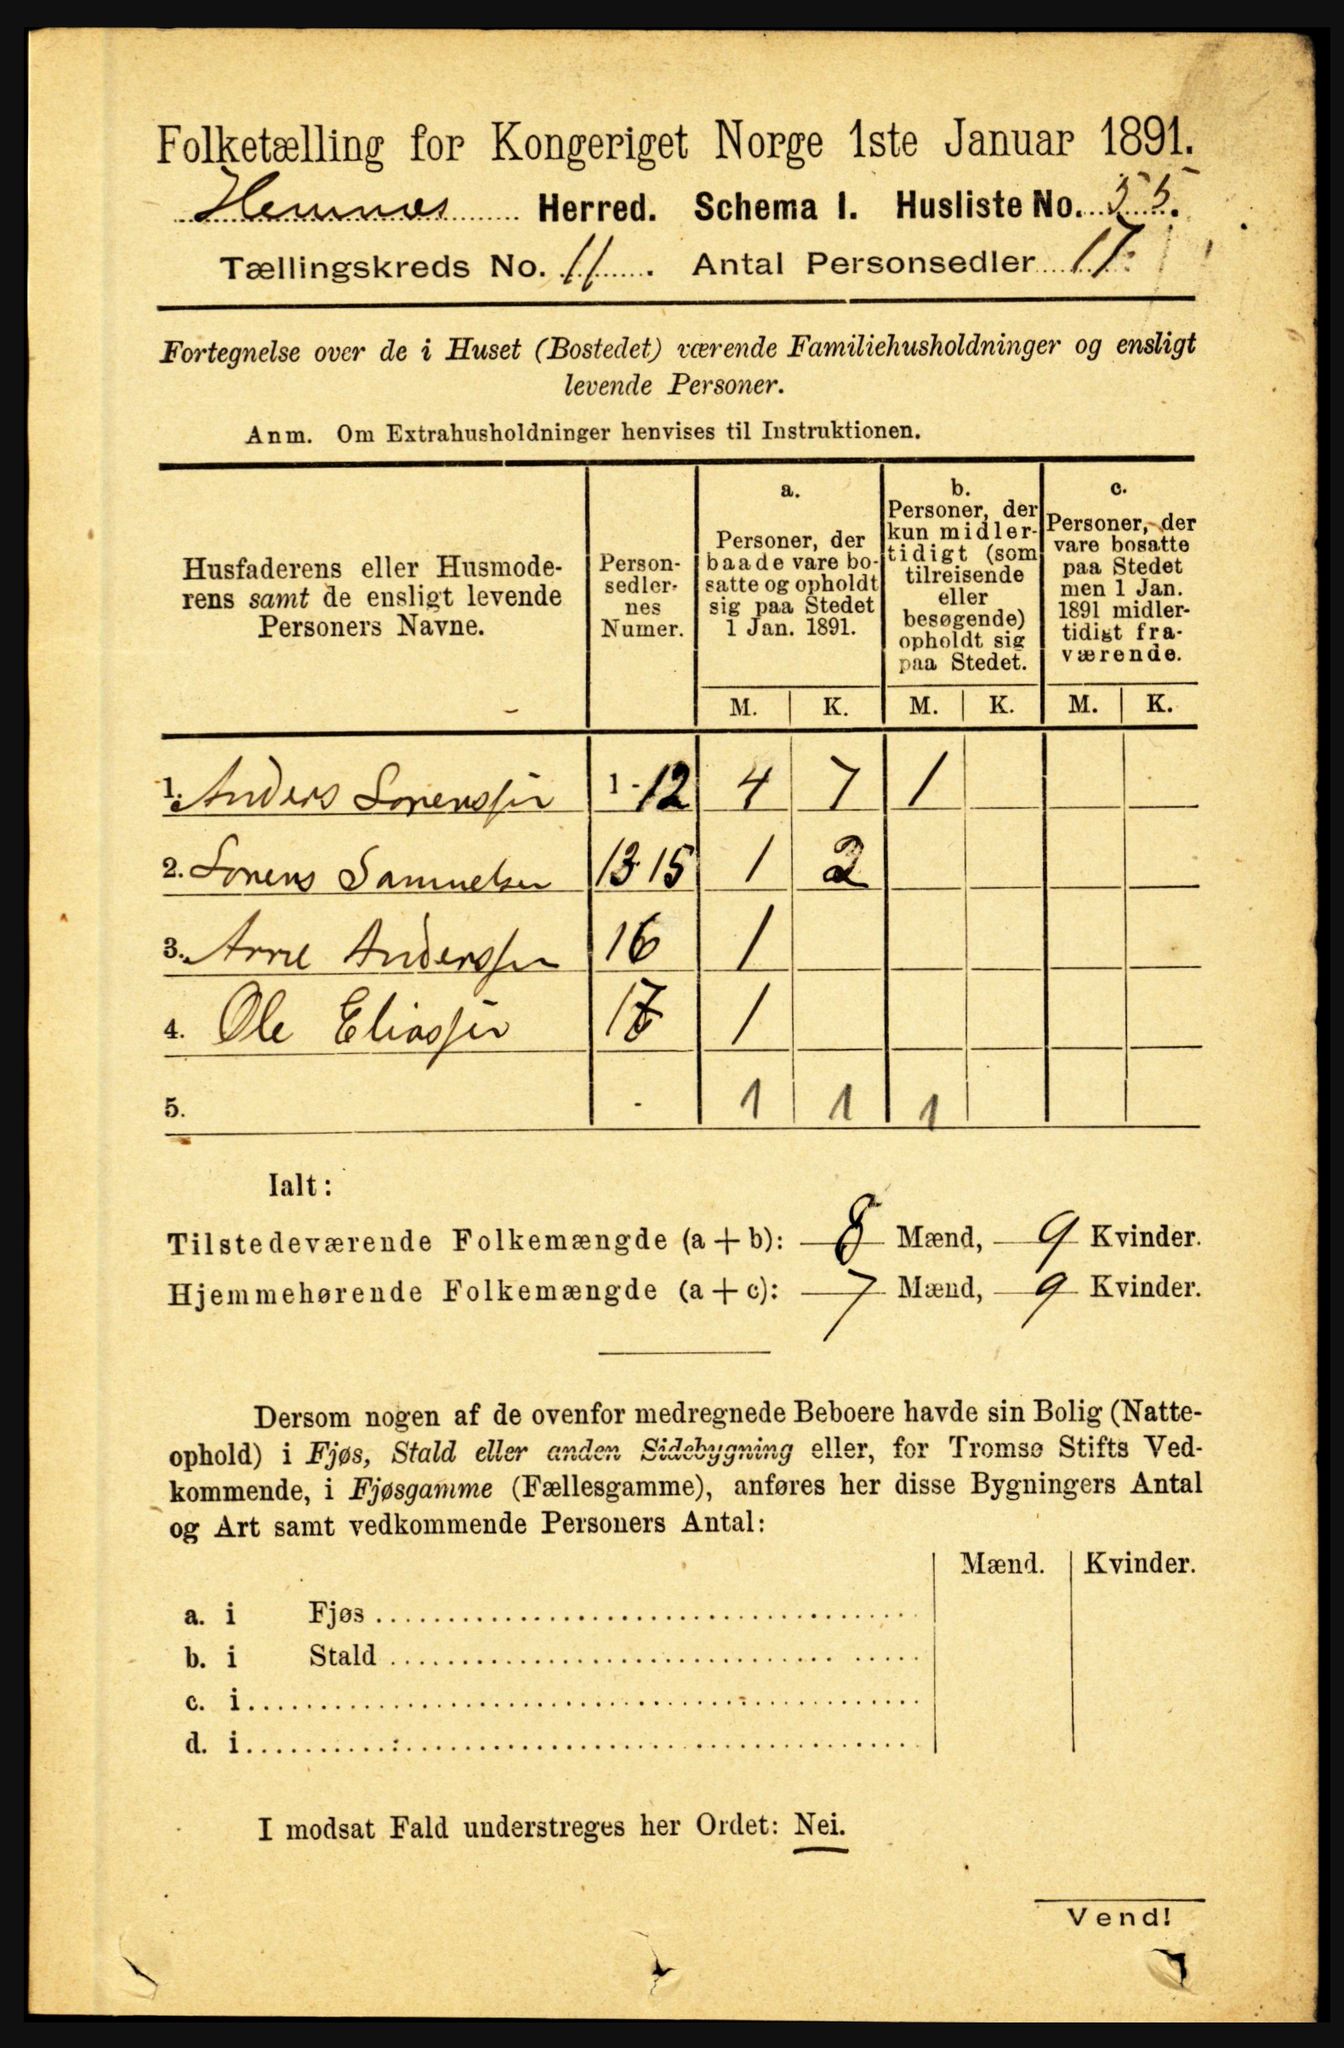 Folketælling for Kongeriget Norge 1ste Januar 1891.
Hemnæs Herred. Schema I. Husliste No. 55.
Tællingskreds No. 11. Antal Personsedler 17.
Fortegnelse over de i Huset (Bostedet) værende Familiehusholdninger og ensligt
levende Personer.
Anm. Om Extrahusholdninger henvises til Instruktionen.
Husfaderens eller Husmode-
rens samt de ensligt levende
Personers Navne.
Person-
sedler-
nes
Numer.
a.
Personer, der
baade vare bo-
satte og opholdt
sig paa Stedet
1 Jan. 1891.
b.
Personer, der
kun midler-
tidigt (som
tilreisende
eller
besøgende)
opholdt sig
paa Stedet.
c.
Personer, der
vare bosatte
paa Stedet
men 1 Jan.
1891 midler-
tidigt fra-
værende.
M. K. M. K. M. K.
1. Anders Sorenssen 1-12 4 7 1
2. Sorens Samuelsen 13-15 1 2
3. Arne Anderssen 16 1
4. Ole Eliassen 17 1
5. 1 1 1
Ialt:
Tilstedeværende Folkemængde (a + b): 8 Mænd, 9 Kvinder.
Hjemmehørende Folkemængde (a + c): 7 Mænd, 9 Kvinder.
Dersom nogen af de ovenfor medregnede Beboere havde sin Bolig (Natte-
ophold) i Fjøs, Stald eller anden Sidebygning eller, for Tromsø Stifts Ved-
kommende, i Fjøsgamme (Fællesgamme), anføres her disse Bygningers Antal
og Art samt vedkommende Personers Antal:
Mænd. Kvinder.
a. i Fjøs
b. i Stald
c. i
d. i
I modsat Fald understreges her Ordet: Nei.
Vend!